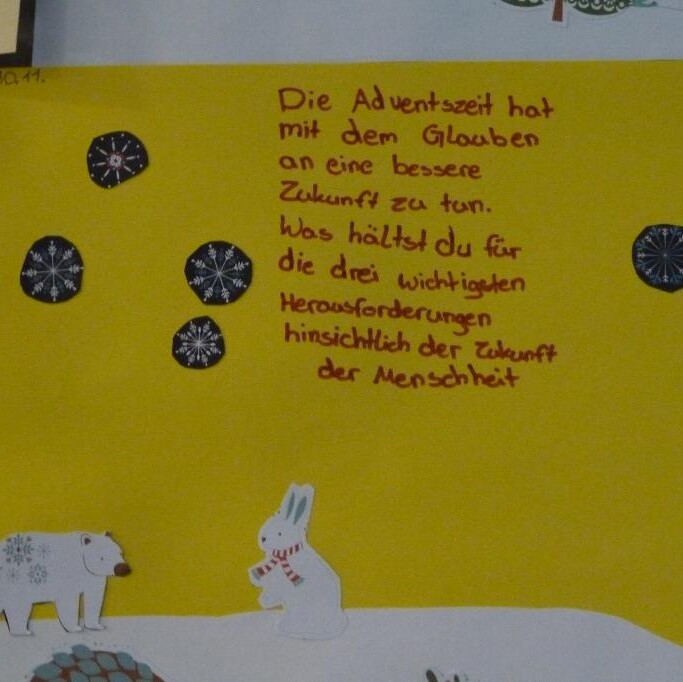 30.11.
Die Adventszeit hat
mit dem Glauben
an eine bessere
Zukunft zu tun.
Was hältst du für
die drei wichtigsten
Herausforderungen
hinsichtlich der Zukunft
der Menschheit